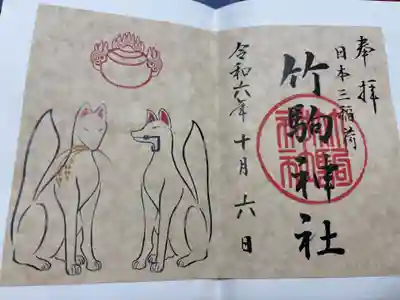 奉拝
日本三稲荷
竹駒神社
令和六年十月六日